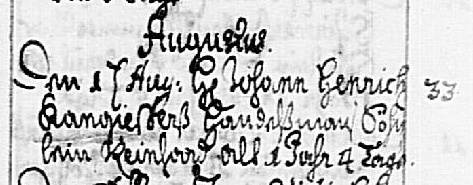 Augustus.
Den 17 Aug: H Johann Henrich 33
Kangießers Handelßmanß Söhn
lein Reinhard alt 1 Jahr 4 Tage.